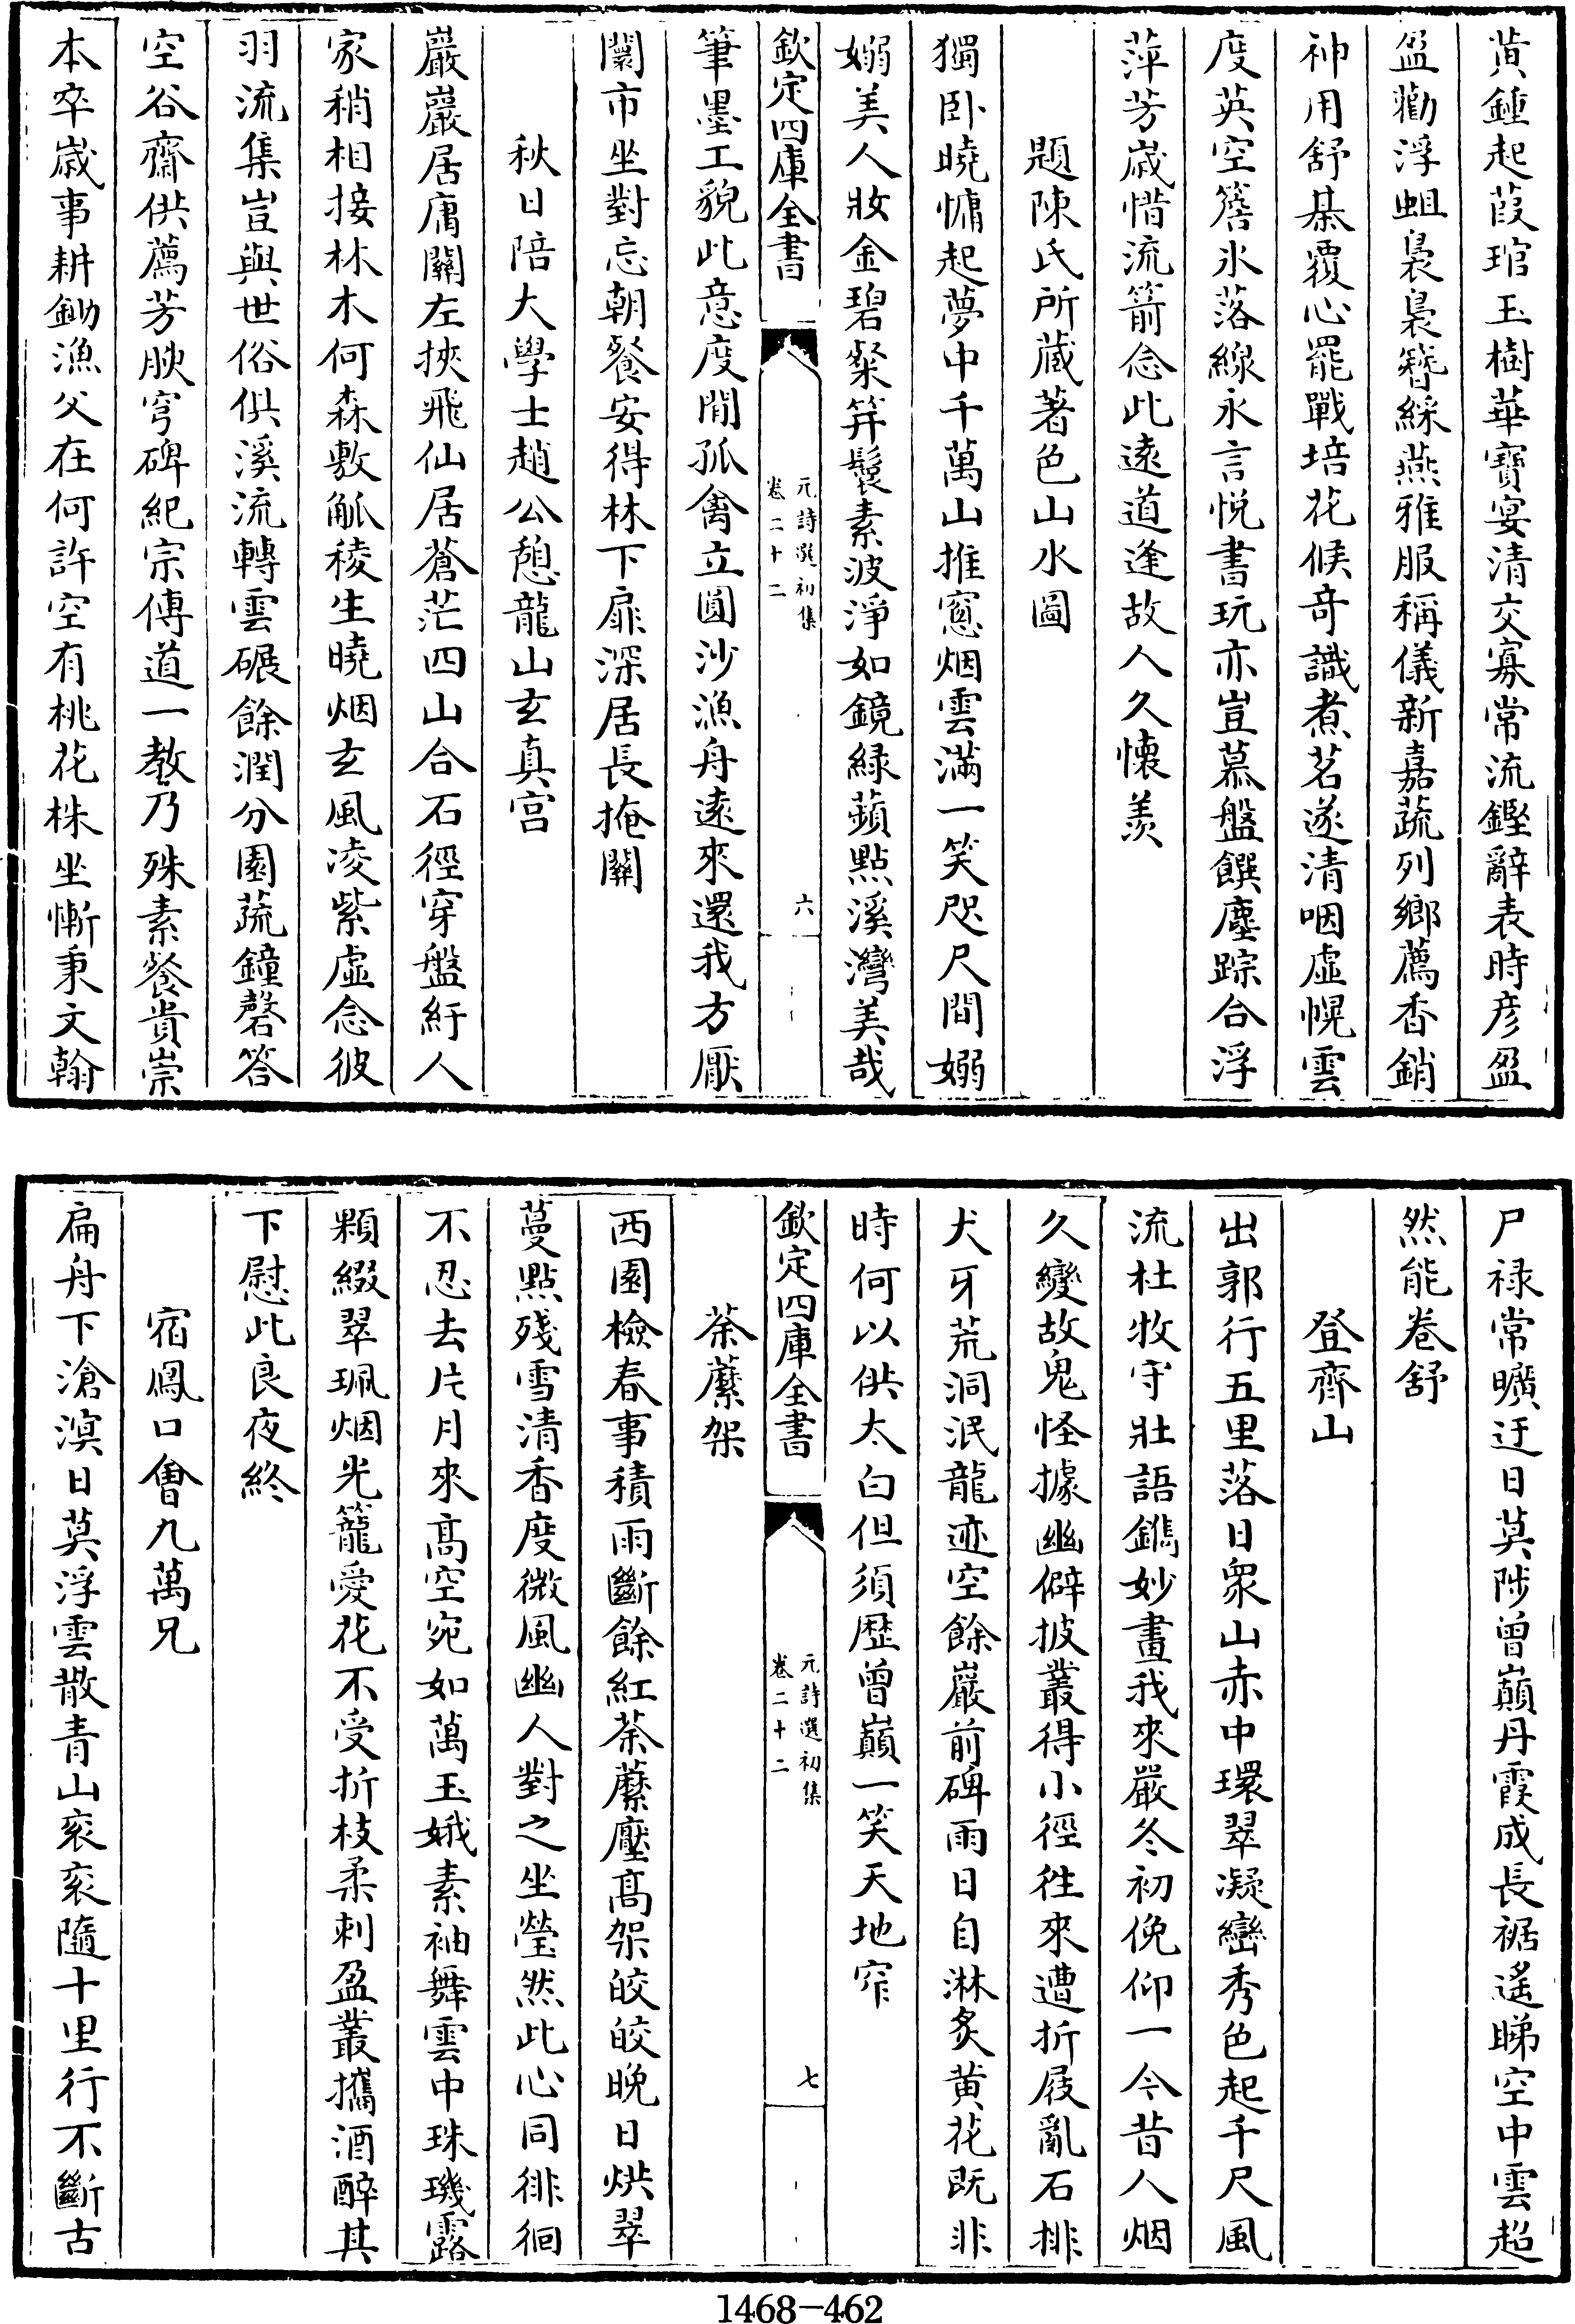 黄鍾起葭琯玉樹華寶宴清交寡常流鏗辭表時彦盈
盈勸浮蛆裊裊簪綵燕雅服稱儀新嘉蔬列鄉薦香銷
神用舒棊覆心罷戰培花候竒識煮茗遂清咽虚幌雲
度英空簷氷落線永言悦書玩亦豈慕盤饌塵踪合浮
萍芳嵗惜流箭念此逺道逢故人久懐羡
題陳氏所藏著色山水圖
獨卧曉慵起夢中千萬山推窓烟雲滿一笑咫尺間嫋
嫋美人妝金碧粲笄鬟素波淨如鏡緑蘋點溪灣美哉
欽定四庫全書
元詩選初集
卷二十二
六
筆墨工貌此意度閒孤禽立圓沙漁舟逺來還我方厭
闤市坐對忘朝餐安得林下扉深居長掩關
秋日陪大學士趙公憩龍山玄真宫
巖巖居庸關左挾飛仙居蒼茫四山合石徑穿盤紆人
家稍相接林木何森敷觚稜生曉烟玄風凌紫虚念彼
羽流集豈與世俗俱溪流轉雲碾餘潤分園蔬鐘磬答
空谷齋供薦芳腴穹碑紀宗傳道一教乃殊素餐貴崇
本卒嵗事耕鋤漁父在何許空有桃花株坐慚秉文翰
尸禄常曠迂日莫陟曾巔丹霞成長裾遥睇空中雲超
然能卷舒
登齊山
出郭行五里落日衆山赤中環翠凝巒秀色起千尺風
流杜牧守壯語鐫妙畫我來嚴冬初俛仰一今昔人烟
久變故鬼怪據幽僻披叢得小徑徃來遭折屐亂石排
犬牙荒洞泯龍迹空餘巖前碑雨日自淋炙黄花既非
時何以供太白但須歴曾巔一笑天地窄
欽定四庫全書
元詩選初集
卷二十二
七
荼蘼架
西園檢春事積雨斷餘紅荼蘼壓髙架皎皎晚日烘翠
蔓點殘雪清香度微風幽人對之坐瑩然此心同徘徊
不忍去片月來髙空宛如萬玉娥素袖舞雲中珠璣露
顆綴翠珮烟光籠愛花不受折枝柔刺盈叢攜酒醉其
下慰此良夜終
宿鳳口會九萬兄
扁舟下滄溟日莫浮雲散青山衮衮隨十里行不斷古
1468-462